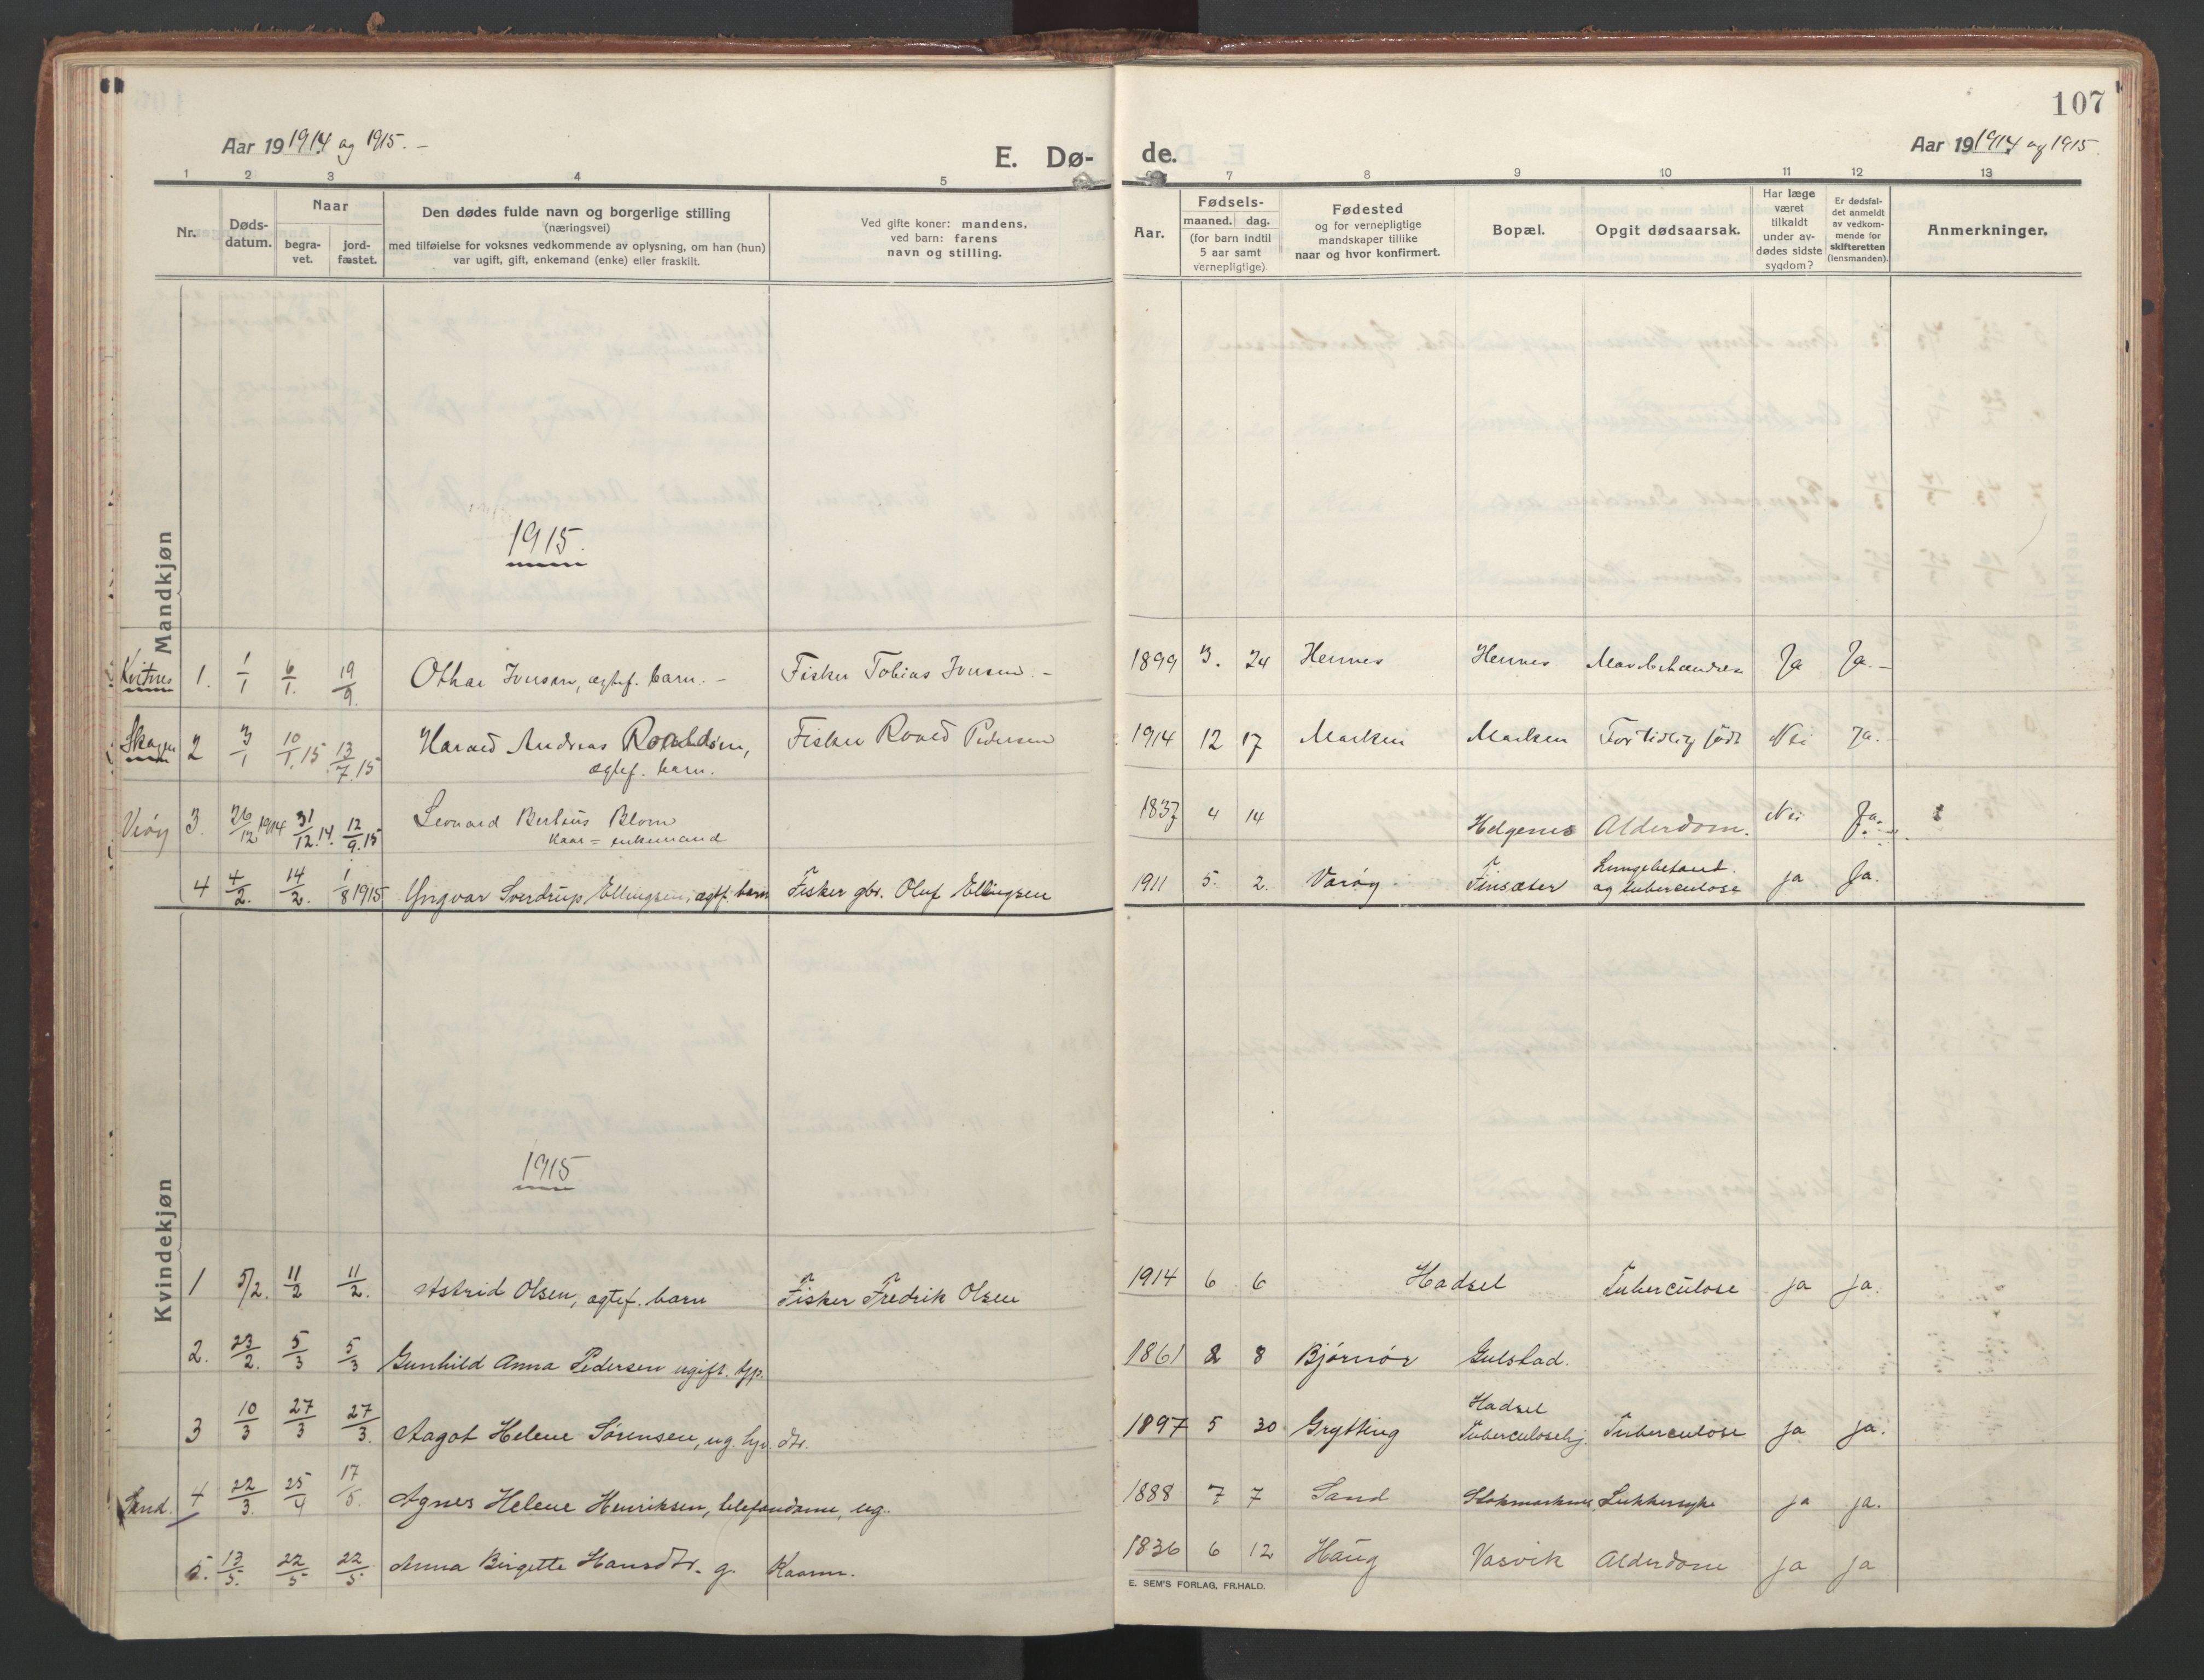 107
Aar 19 1914 og 1915. –
E. Dø-
de.
Aar 19 1914 og 1915.
1 2 3 4 5 7 8 9 10 11 12 13
Nr.
Døds-
datum.
Naar
begra-
vet.
jord-
fæstet.
Den dødes fulde navn og borgerlige stilling
(næringsvei)
med tilføielse for voksnes vedkommende av oplysning, om han (hun)
var ugift, gift, enkemand (enke) eller fraskilt.
Ved gifte koner: mandens,
ved barn: farens
navn og stilling.
Aar.
Fødsels-
maaned. dag.
(for barn indtil
5 aar samt
vernepligtige)
Fødested
og for vernepligtige
mandskaper tillike
naar og hvor konfirmert.
Bopæl.
Opgit dødsaarsak.
Har læge
været
tilkaldt
under av-
dødes sidste
sygdom?
Er dødsfal-
det anmeldt
av vedkom-
mende for
skifteretten
(lensmanden).
Anmerkninger.
Mandkjøn
1915.
Kvitnes 1. 1/1 6/1. 19/9. Othar Iversen, ægtef. barn. – Fisker Tobias Iversen. – 1899 3. 24 Hennes Hennes Ja Ja. –
Skagen 2 3/1 10/1.15 13/7.15 Harald Andreas Roaldsen, Fisker Roald Pedersen 1914 12 17 Marken Marken For tidlig født Nei Ja.
ægtef. barn.
3. 26/12 1914 31/12.14. 12/9.15 Leonard Bertius Blom 1837 4 14 Helgenes Alderdom. Nei Ja.
Kaar = enkemand
4 4/2. 14/2. 1/8 1915 Yngvar Sverdrup Ellingsen, ægtf. barn Fisker gbr. Oluf Ellingsen 1911 5. 2. Finsæter Lungebetænd. ja Ja.
og tuberculose
Kvindekjøn
1915
1 5/2. 11/2 11/2. Astrid Olsen, ægtef. barn Fisker Fredrik Olsen 1914 6 6 Hadsel Tuberculose ja ja.
2. 23/2. 5/3 5/3 Gunhild Anna Pedersen ugift. 1861 2 8 Bjørnør Gulstad.
3 10/3 27/3 27/3. Aagot Helene Sørensen, ug. dtr. 1897 5 30 Grytting Hadsel Tuberculosehj. Tuberculose ja ja.
Sand. 4 22/3. 25/4 17/5. Agnes Helene Henriksen, telefondame, ug. 1888 7 7 Sand Stokmarknes Sukkersyke ja ja.
5. 13/5. 22/5 22/5 Anna Birgette Hansdtr. g. Kaarm. 1836 6 12 Haug Vasvik Alderdom ja ja
E. SEM'S FORLAG, FR.HALD.